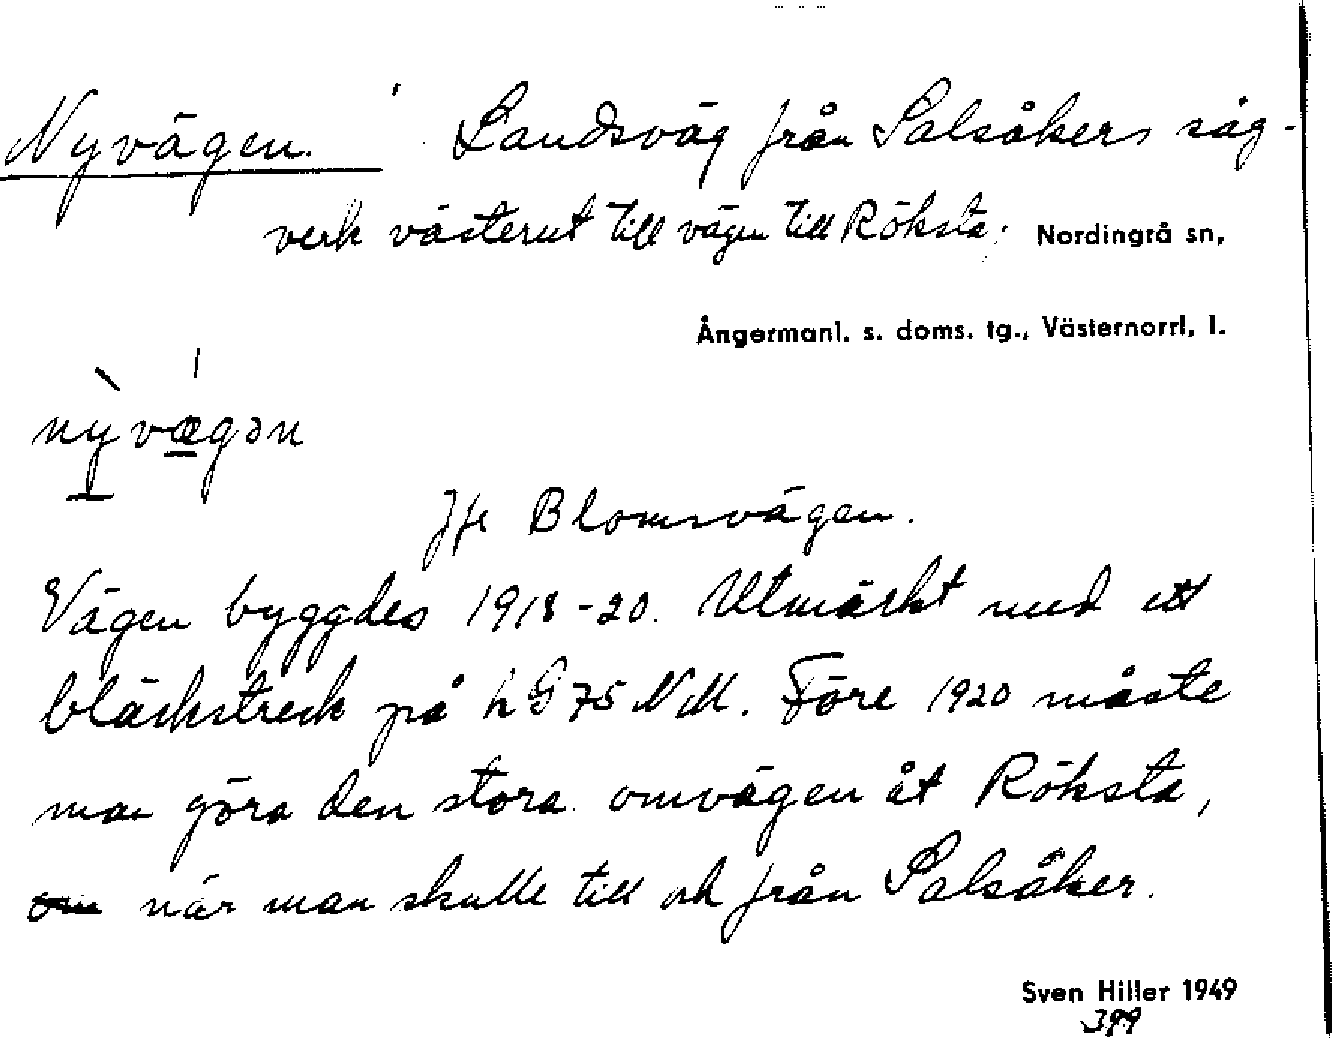 Nyvägen. Landsväg från Salsåkers såg-
verk västerut till vägen till Röksta. Nordingrå sn,
Ångermanl. s. doms. tg., Västernorrl. l.
nỳvǽgən
Jfr Blomsvägen.
Vägen byggdes 1918-20. Utmärkt med ett
bläckstreck på h G 75 NM. Före 1920 måste
man göra den stora omvägen åt Röksta,
om när man skulle till och från Salsåker.
Sven Hiller 1949
399